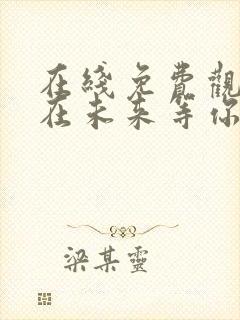 在綫免費觀
在未来等你
梁某靈